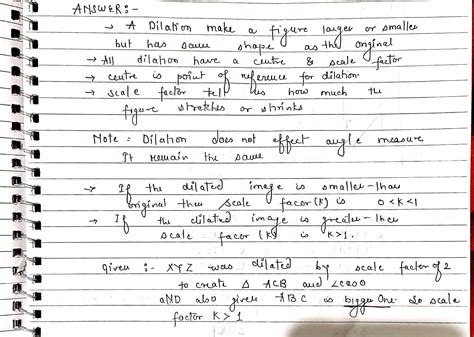 ANSWER:-
→ A Dilation make a figure larger or smaller
but has same shape as the original
→ All dilation have a centre & scale factor
→ centre is point of reference for dilation
→ scale factor tell us how much the
figure stretches or shrinks
Note: Dilation does not effect angle measure
it remain the same
→ If the dilated image is smaller than
original then scale facor (K) is 0<K<1
→ If the dilated image is greater than
scale facor (K) is K>1.
Given :- XYZ was dilated by scale factor of 2
to create Δ ACB and
AND also given ABC is bigger One so scale
factor K>1